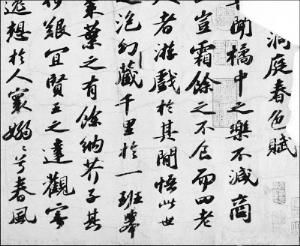 洞庭春色賦
聞橘中之樂不減商
豈霜餘之不食而四老
人者游戲於其間悟此世
之泡幻藏千里於一班舉
棗葉之有餘納芥子其
何艱宜賢王之達觀寄
逸想於人寰嫋嫋兮春風